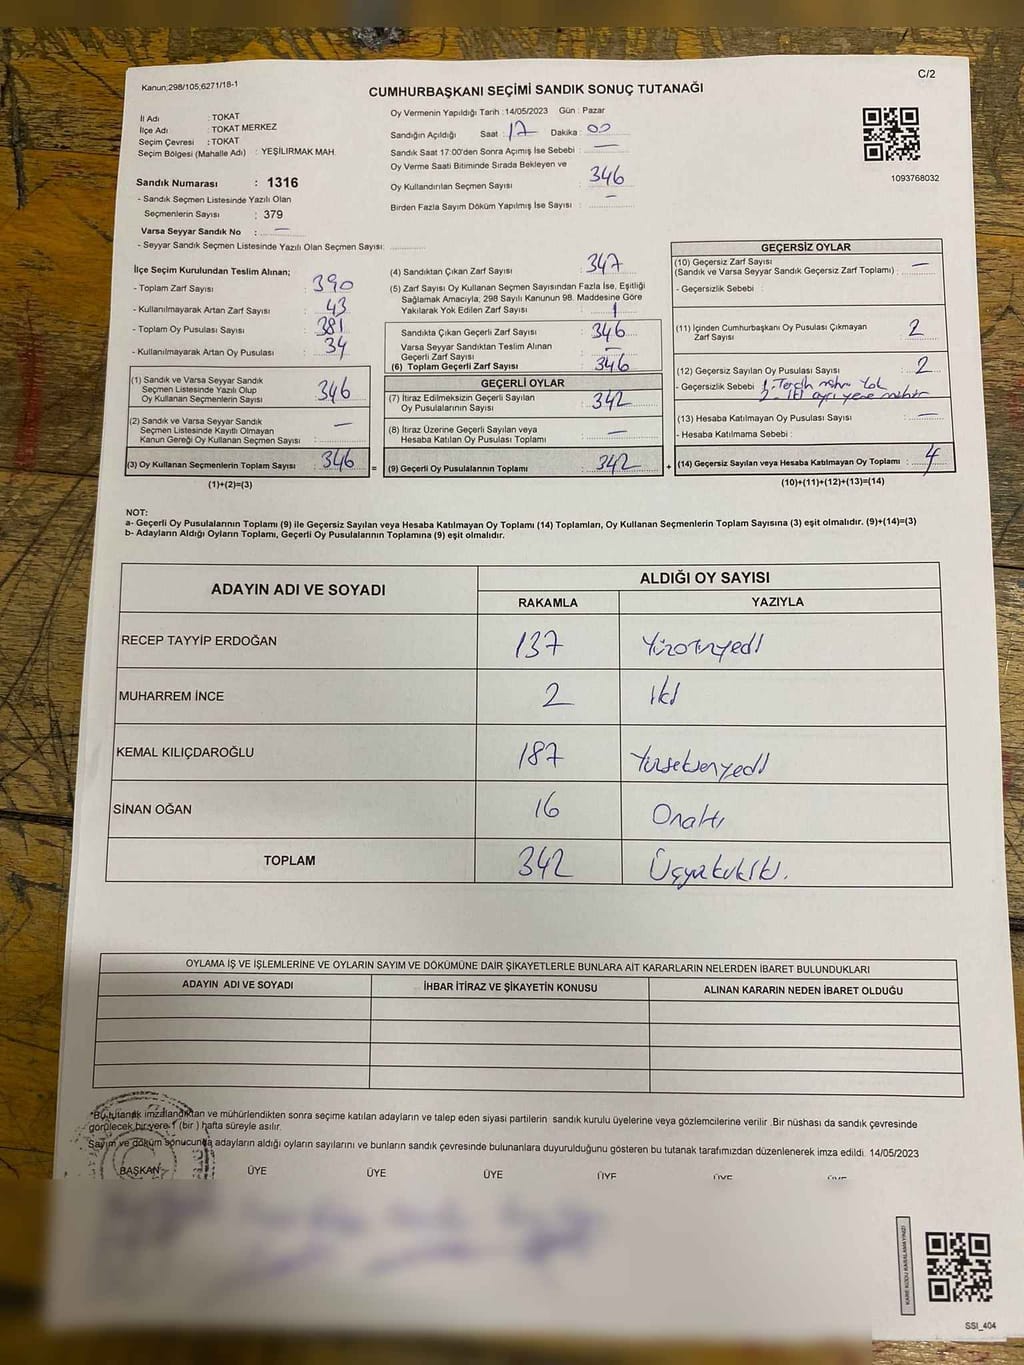 Kanun;298/105,6271/18-1
C/2
CUMHURBAŞKANI SEÇİMİ SANDIK SONUÇ TUTANAĞI
İl Adı : TOKAT
İlçe Adı : TOKAT MERKEZ
Seçim Çevresi : TOKAT
Seçim Bölgesi (Mahalle Adı) : YEŞİLIRMAK MAH.
Sandık Numarası : 1316
- Sandık Seçmen Listesinde Yazılı Olan
Seçmenlerin Sayısı : 379
Varsa Seyyar Sandık No : —
- Seyyar Sandık Seçmen Listesinde Yazılı Olan Seçmen Sayısı:
Oy Vermenin Yapıldığı Tarih :14/05/2023 Gün : Pazar
Sandığın Açıldığı Saat : 17 Dakika : 00
Sandık Saat 17:00'den Sonra Açımış İse Sebebi : —
Oy Verme Saati Bitiminde Sırada Bekleyen ve
Oy Kullandırılan Seçmen Sayısı : 346
Birden Fazla Sayım Döküm Yapılmış İse Sayısı : —
1093768032
İlçe Seçim Kurulundan Teslim Alınan;
- Toplam Zarf Sayısı : 390
- Kullanılmayarak Artan Zarf Sayısı : 43
- Toplam Oy Pusulası Sayısı : 381
- Kullanılmayarak Artan Oy Pusulası : 34
(1) Sandık ve Varsa Seyyar Sandık
Seçmen Listesinde Yazılı Olup
Oy Kullanan Seçmenlerin Sayısı : 346
(2) Sandık ve Varsa Seyyar Sandık
Seçmen Listesinde Kayıtlı Olmayan
Kanun Gereği Oy Kullanan Seçmen Sayısı : —
(3) Oy Kullanan Seçmenlerin Toplam Sayısı : 346 =
(1)+(2)=(3)
(4) Sandıktan Çıkan Zarf Sayısı : 347
(5) Zarf Sayısı Oy Kullanan Seçmen Sayısından Fazla İse, Eşitliği
Sağlamak Amacıyla; 298 Sayılı Kanunun 98. Maddesine Göre
Yakılarak Yok Edilen Zarf Sayısı : 1
Sandıkta Çıkan Geçerli Zarf Sayısı : 346
Varsa Seyyar Sandıktan Teslim Alınan
Geçerli Zarf Sayısı : —
(6) Toplam Geçerli Zarf Sayısı : 346
GEÇERLİ OYLAR
(7) İtiraz Edilmeksizin Geçerli Sayılan
Oy Pusulalarının Sayısı : 342
(8) İtiraz Üzerine Geçerli Sayılan veya
Hesaba Katılan Oy Pusulası Toplamı : —
(9) Geçerli Oy Pusulalarının Toplamı : 342 +
GEÇERSİZ OYLAR
(10) Geçersiz Zarf Sayısı
(Sandık ve Varsa Seyyar Sandık Geçersiz Zarf Toplamı) : —
- Geçersizlik Sebebi :
(11) İçinden Cumhurbaşkanı Oy Pusulası Çıkmayan
Zarf Sayısı : 2
(12) Geçersiz Sayılan Oy Pusulası Sayısı : 2
- Geçersizlik Sebebi : 1- Tercih mührü Yok
2- İki ayrı yere mühür
(13) Hesaba Katılmayan Oy Pusulası Sayısı : —
- Hesaba Katılmama Sebebi :
(14) Geçersiz Sayılan veya Hesaba Katılmayan Oy Toplamı : 4
(10)+(11)+(12)+(13)=(14)
NOT:
a- Geçerli Oy Pusulalarının Toplamı (9) ile Geçersiz Sayılan veya Hesaba Katılmayan Oy Toplamı (14) Toplamları, Oy Kullanan Seçmenlerin Toplam Sayısına (3) eşit olmalıdır. (9)+(14)=(3)
b- Adayların Aldığı Oyların Toplamı, Geçerli Oy Pusulalarının Toplamına (9) eşit olmalıdır.
ADAYIN ADI VE SOYADI ALDIĞI OY SAYISI
RAKAMLA YAZIYLA
RECEP TAYYİP ERDOĞAN 137 Yüzotuzyedi
MUHARREM İNCE 2 İki
KEMAL KILIÇDAROĞLU 187 Yüzseksenyedi
SİNAN OĞAN 16 Onaltı
TOPLAM 342 Üçyüzkırkiki.
OYLAMA İŞ VE İŞLEMLERİNE VE OYLARIN SAYIM VE DÖKÜMÜNE DAİR ŞİKAYETLERLE BUNLARA AİT KARARLARIN NELERDEN İBARET BULUNDUKLARI
ADAYIN ADI VE SOYADI İHBAR İTİRAZ VE ŞİKAYETİN KONUSU ALINAN KARARIN NEDEN İBARET OLDUĞU
*Bu tutanak imzalandıktan ve mühürlendikten sonra seçime katılan adayların ve talep eden siyasi partilerin sandık kurulu üyelerine veya gözlemcilerine verilir .Bir nüshası da sandık çevresinde
görülecek bir yere 1 (bir ) hafta süreyle asılır.
Sayım ve döküm sonucunda adayların aldığı oyların sayılarını ve bunların sandık çevresinde bulunanlara duyurulduğunu gösteren bu tutanak tarafımızdan düzenlenerek imza edildi. 14/05/2023
BAŞKAN ÜYE ÜYE ÜYE ÜYE ÜYE ÜYE
KARE KODU KARALAMAYINIZ!
SSI_404